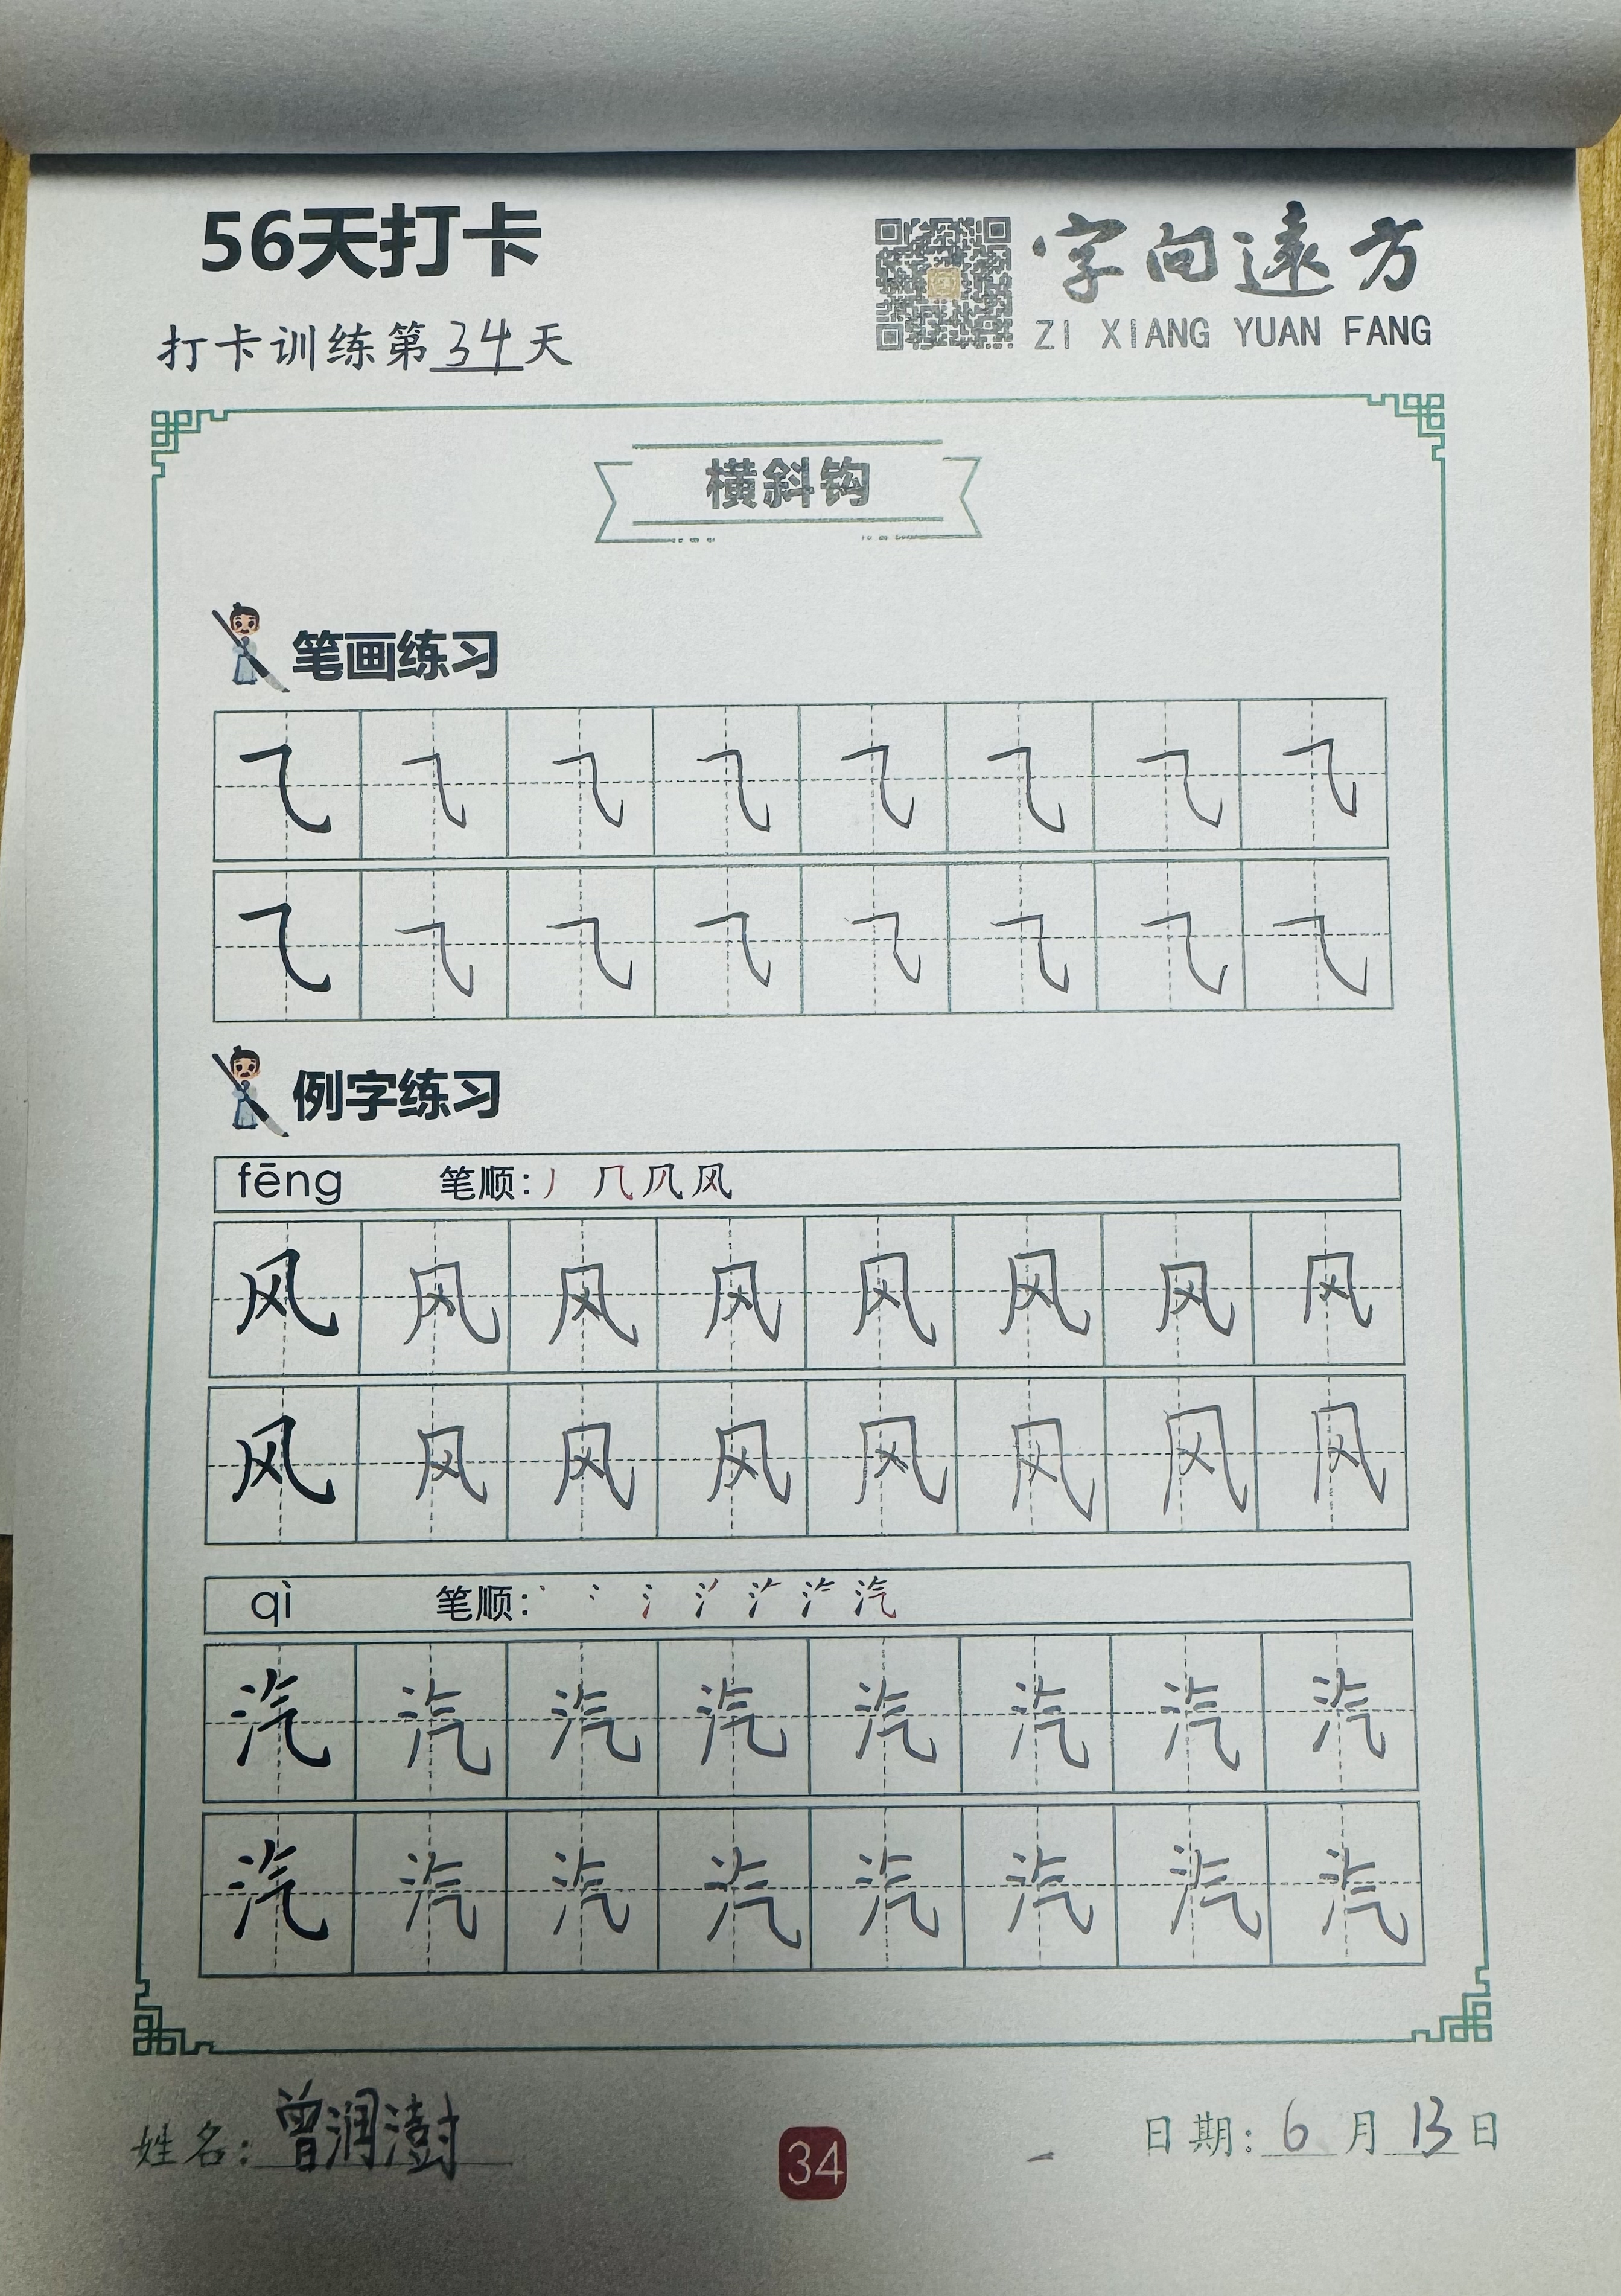 56天打卡
字向遠方
ZI XIANG YUAN FANG
打卡训练第34天
横斜钩
笔画练习
㇈ ㇈ ㇈ ㇈ ㇈ ㇈ ㇈ ㇈
㇈ ㇈ ㇈ ㇈ ㇈ ㇈ ㇈ ㇈
例字练习
fēng 笔顺: 丿 几 凨 风
风 风 风 风 风 风 风 风
风 风 风 风 风 风 风 风
qì 笔顺: 汽
汽 汽 汽 汽 汽 汽 汽 汽
汽 汽 汽 汽 汽 汽 汽 汽
姓名: 曾润澍
34
日期: 6月13日